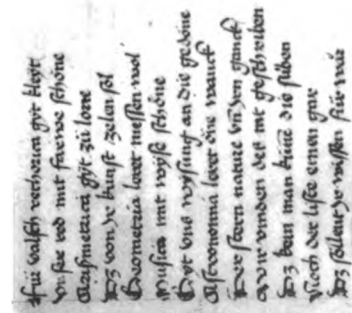 valsch rethorica gyt kleyt
Unser red mit farwe schöne
Arismetrica gyt zü lone
Dz von kunst zelen sol
Geometria leret messen wol
Musica mit wyse schöne
Gyt uns wysung an die gedöne
Astronomia leret öne wanck
Der stern nature vn yren ganck
Wir vinden des nit geschriben
Dz kein man die siben
Noch der liste einen gar
Dz söllent wissen für war